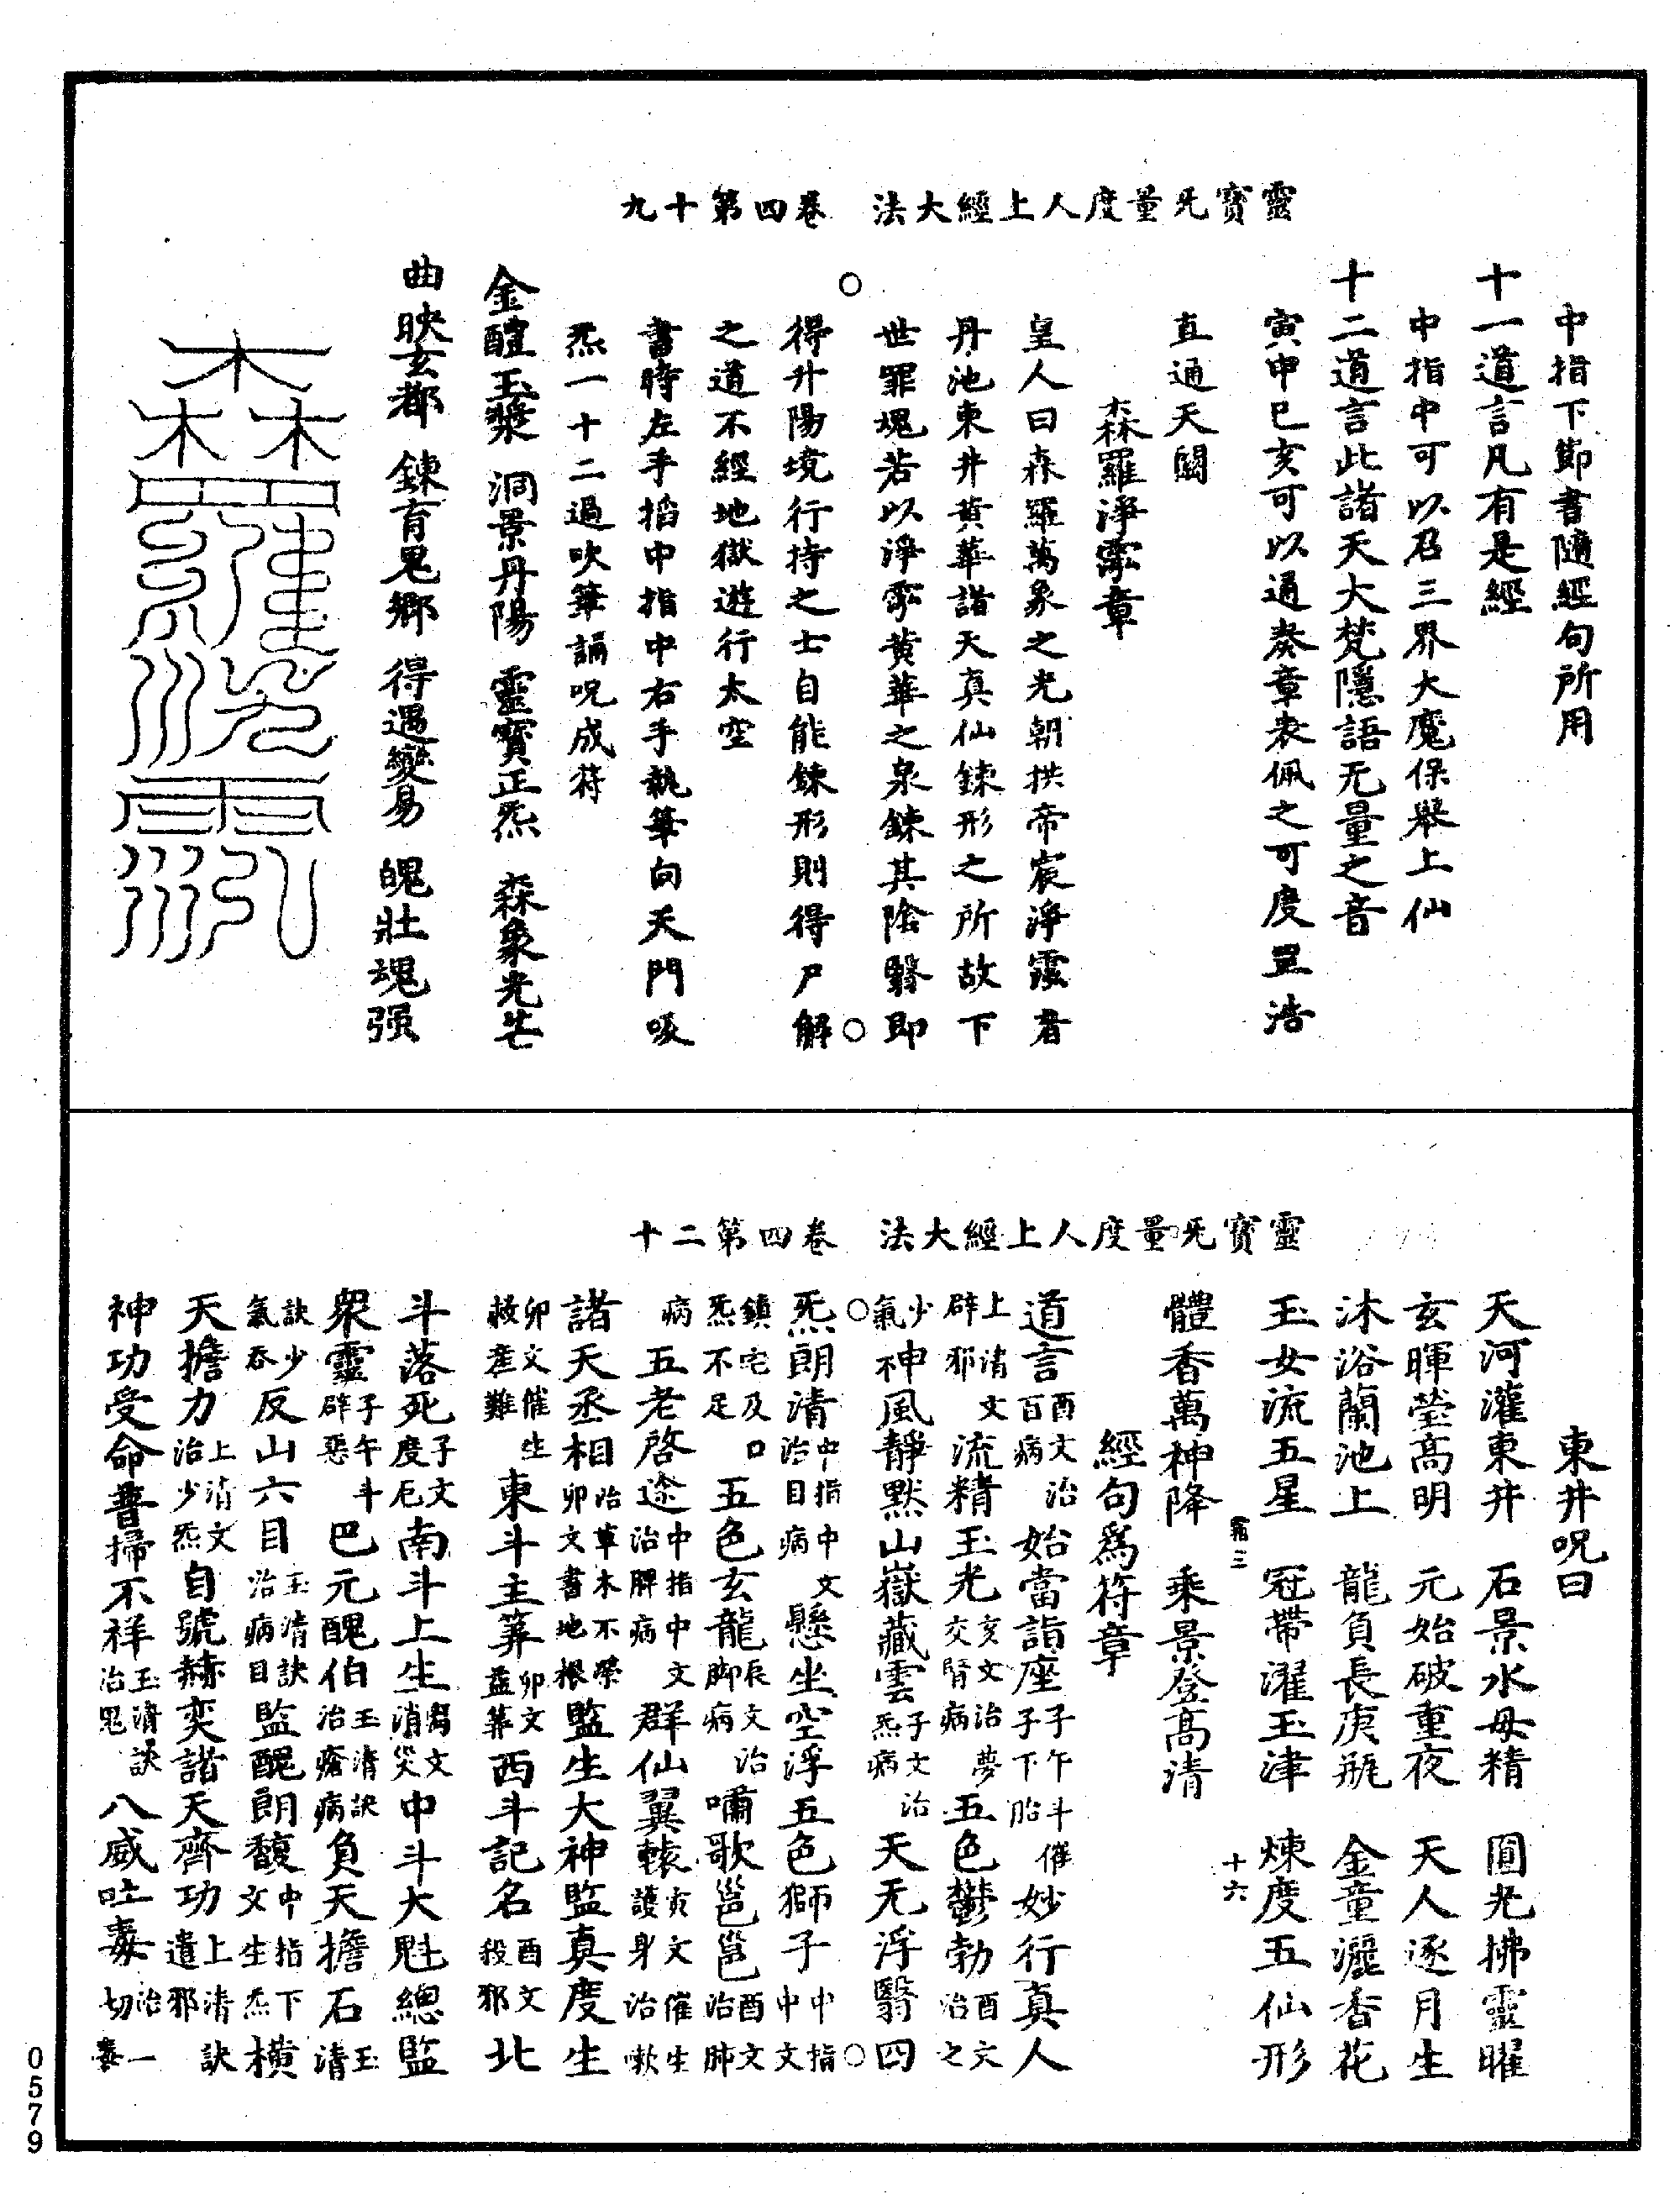 靈寶旡量度人上經大法　卷四第十九
中指下節書隨經句所用
十一道言凡有是經
中指中可以召三界大魔保舉上仙
十二道言此諸天大梵隱語无量之音
寅申巳亥可以通奏章表佩之可度罡浩
直通天闕
森羅淨霐章
皇人曰森羅萬象之光朝拱帝宸淨霞者
丹池東井黃華諸天真仙鍊形之所故下
世罪魂若以淨霐黃華之泉鍊其陰翳即
得升陽境行持之士自能鍊形則得尸解
之道不經地獄遊行太空
書時左手搯中指中右手執筆向天門啄
炁一十二過吹筆誦呪成符
金醴玉漿　洞景丹陽　靈寶正炁　森象光芒
曲映玄都　鍊育鬼鄉　得遇變易　魄壯魂强
靈寶旡量度人上經大法　卷四第二十
東井呪曰
天河灌東井　石景水母精　圓光拂靈曜
玄暉瑩高明　元始破重夜　天人逐月生
沐浴蘭池上　龍負長庚瓶　金童灑香花
玉女流五星　冠帶濯玉津　煉度五仙形
十六
體香萬神降　乘景登高清
經句為符章
道言酉文治百病始當詣座子午斗催子下胎妙行真人
上清文辟邪流精玉光亥文治夢交腎病五色鬱勃酉文治之
少氣神風靜默山嶽藏雲子文治炁病天无浮翳四
炁朗清中指中文治目病懸坐空浮五色獅子中指中文
鎮宅及口炁不足五色玄龍辰文治脚病嘯歌邕邕酉文治肺
病五老啓途中指中文治脾病群仙翼轅寅文催生護身治嗽
諸天丞相治草木不榮卯文書地根監生大神監真度生
卯文催生救產難東斗主筭卯文益筭西斗記名酉文殺邪北
斗落死子文度厄南斗上生寫文消災中斗大魁總監
衆靈子午斗辟惡巴元醜伯玉清訣治瘡病負天擔石玉清
訣少氣吞反山六目玉清訣治病目監醜朗馥中指下文生炁橫
天擔力上清文治少炁自號赫奕諸天齊功上清訣遣邪
神功受命普掃不祥玉清訣治鬼八威吐毒治一切毒
0579